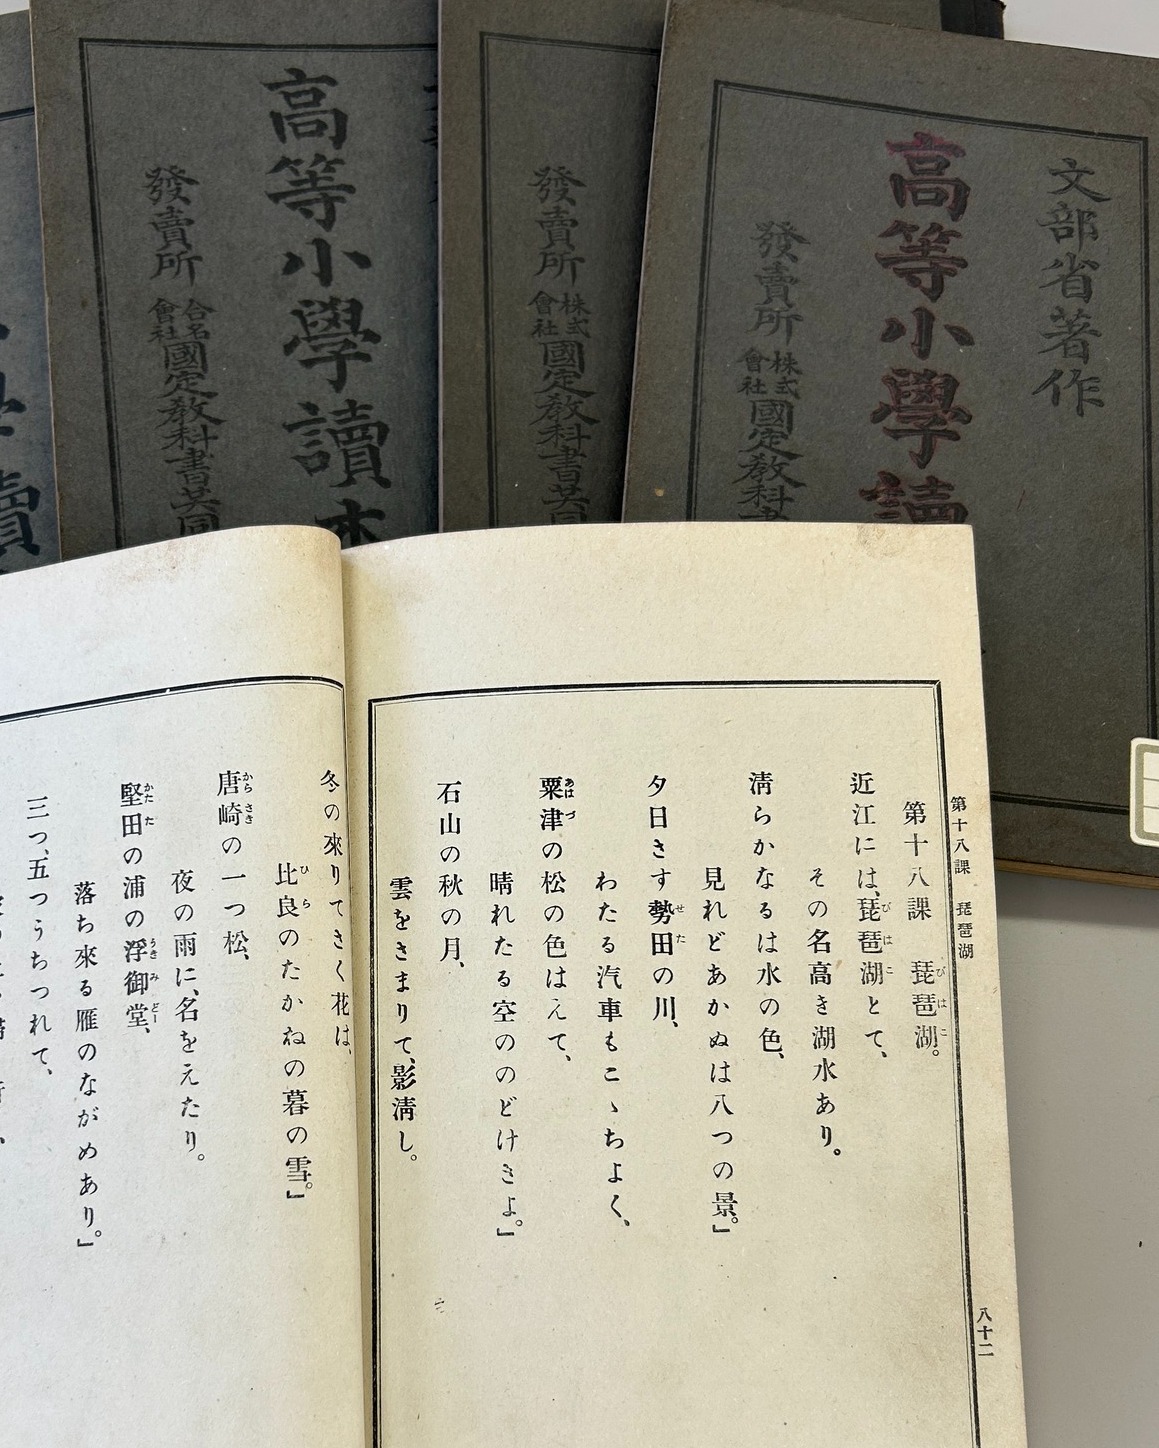 文部省著作
高等小學讀
發賣所 株式會社 國定教科書
發賣所 株式會社 國定教科書共同
高等小學讀本
發賣所 合名會社 國定教科書共同
第十八課 琵琶湖
八十二
第十八課 琵琶湖。
近江には、琵琶湖とて、
その名高き湖水あり。
淸らかなるは水の色、
見れどあかぬは八つの景。」
夕日さす勢田の川、
わたる汽車もこゝちよく、
粟津の松の色はえて、
晴れたる空ののどけさよ。」
石山の秋の月、
雲をさまりて、影淸し。
冬の來りてさく花は、
比良のたかねの暮の雪。」
唐崎の一つ松、
夜の雨に、名をえたり。
堅田の浦の浮御堂、
落ち來る雁のながめあり。」
三つ、五つうちつれて、